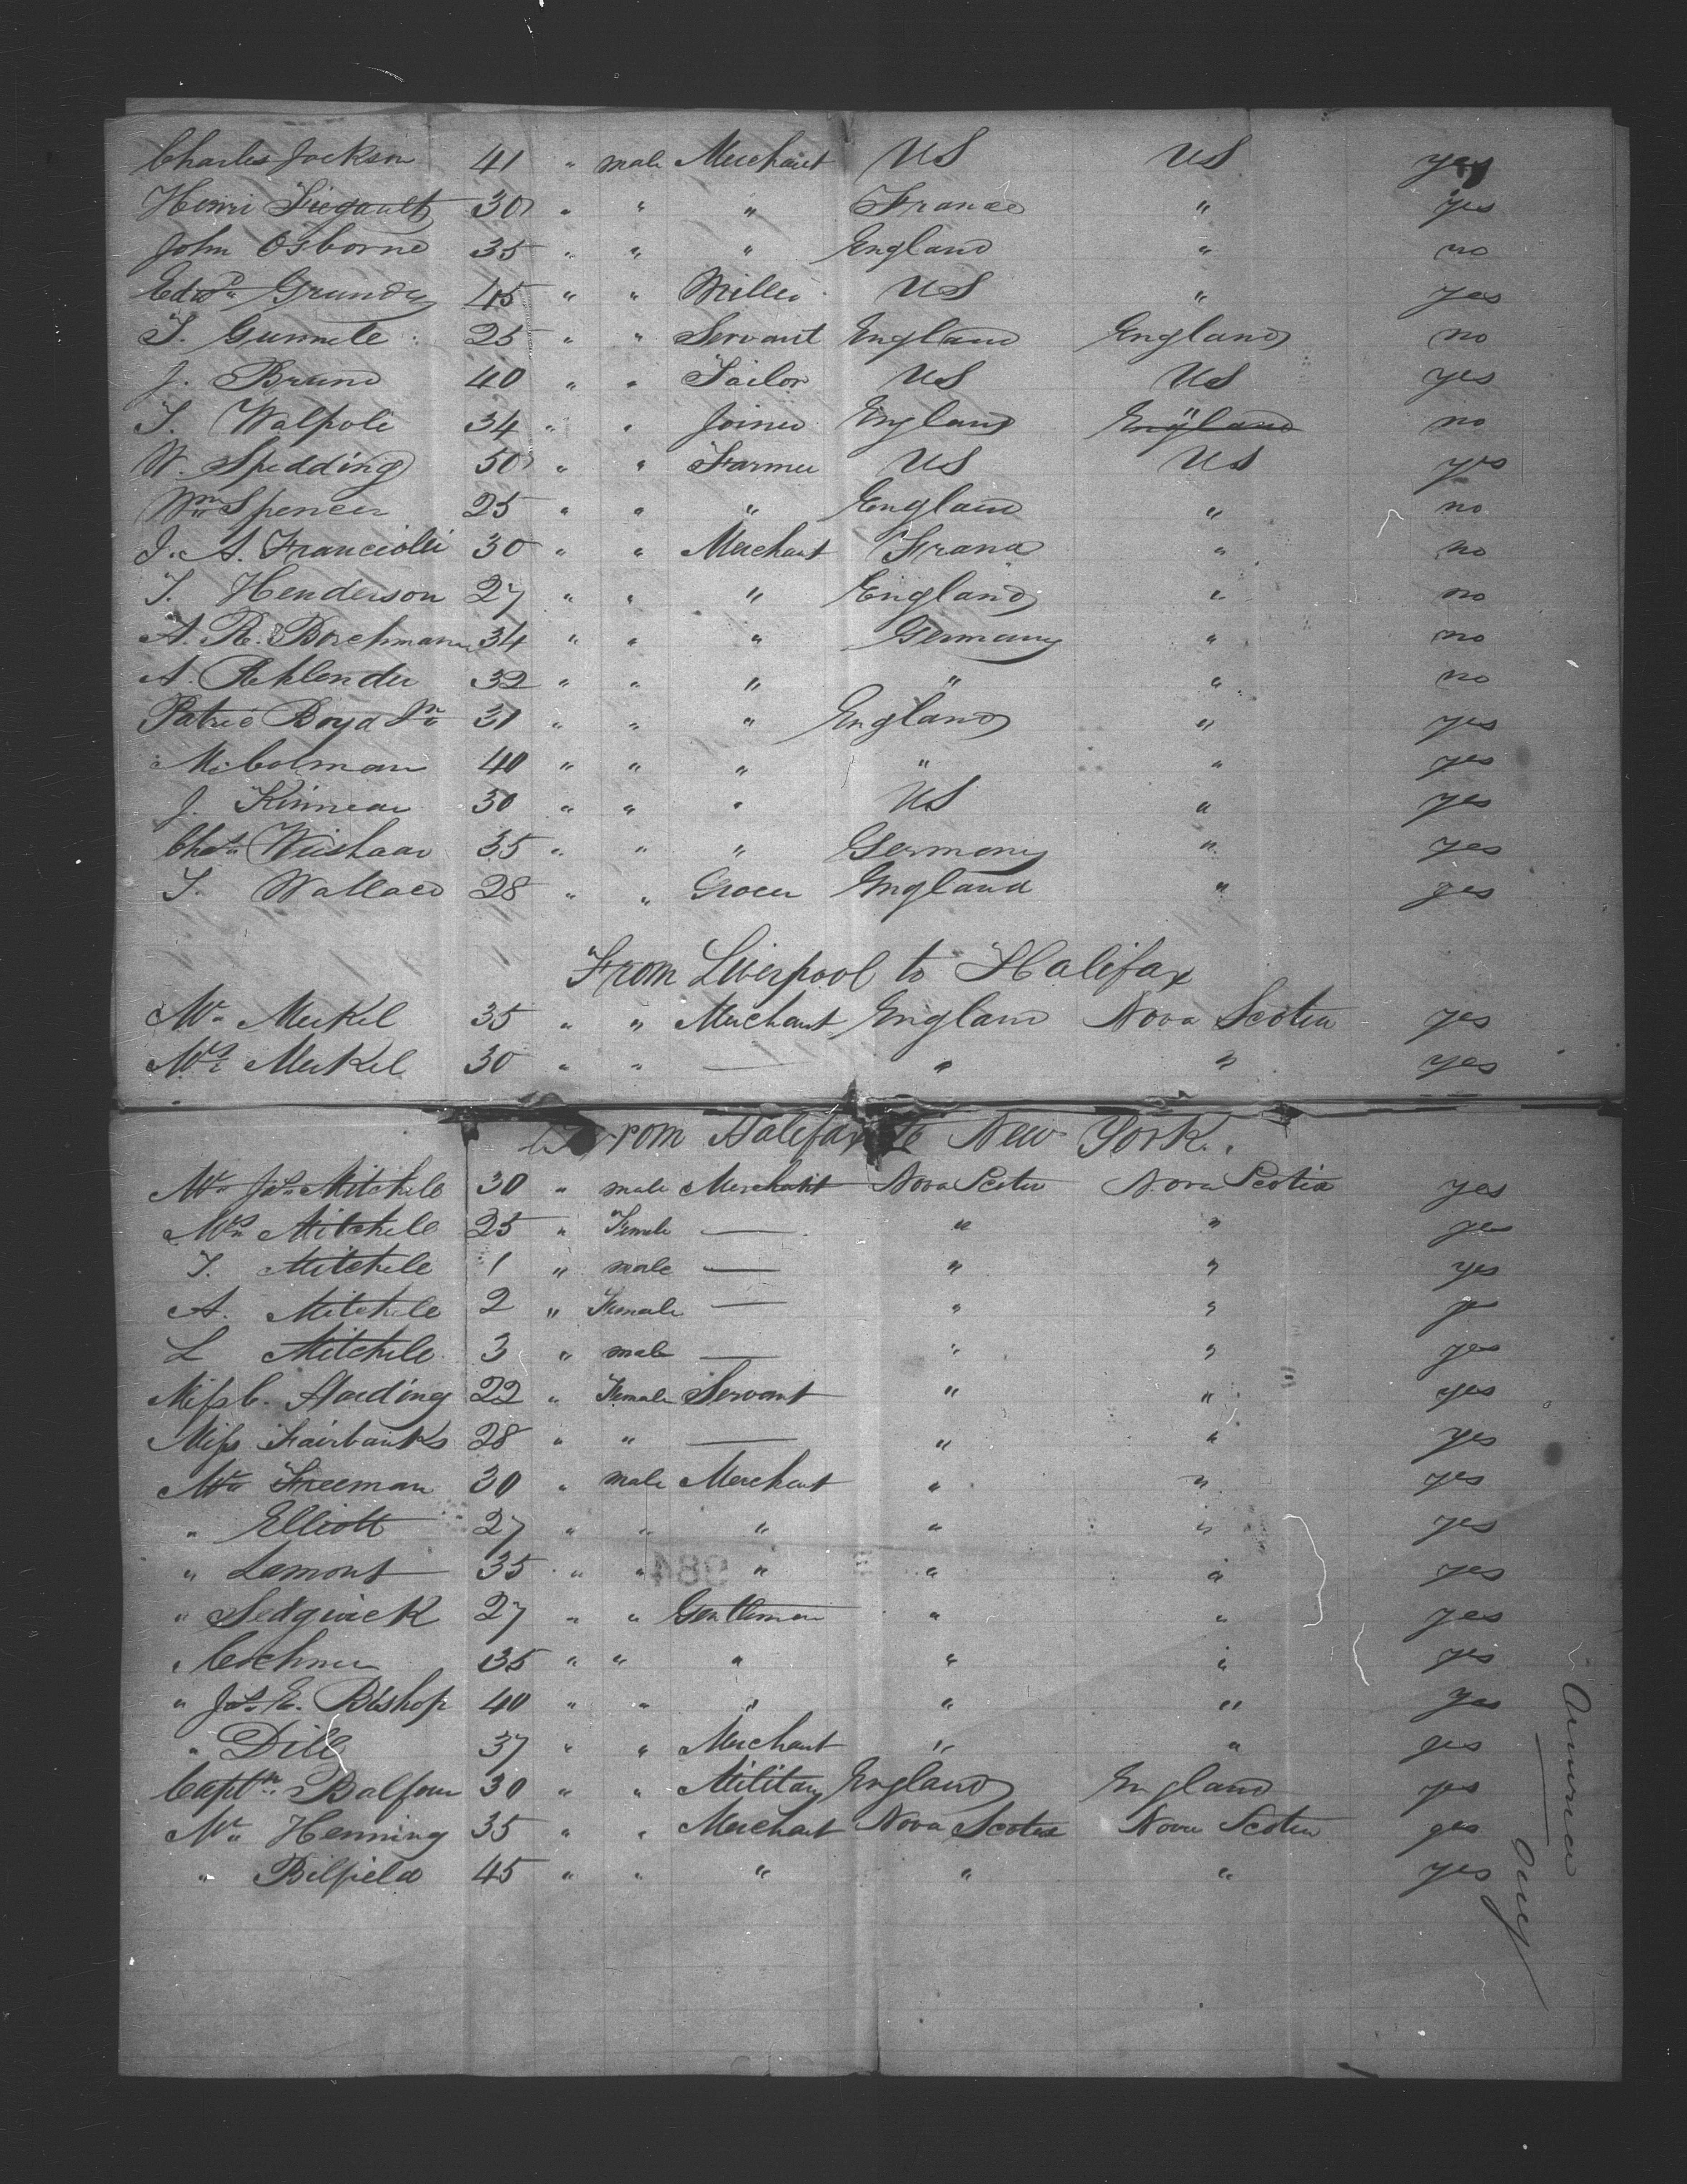 Charles Jackson 41 " male Merchant US US yes
Henri Fregault 30 " " " France " yes
John Osborne 35 " " " England " no
Edwd Grundy 45 " " Miller US " yes
T. Gunnele 25 " " Servant England England no
J. Brund 40 " " Tailor US US yes
T. Walpole 34 " " Joiner England England " no
W. Spedding 50 " " Farmer US US yes
Wm Spencer 25 " " " England " no
J. A. Franciolli 30 " " Merchant France " no
T. Henderson 27 " " " England " no
A. R. Borchmann 34 " " " Germany " no
A. Rehlender 32 " " " " " no
Patric Boyd Sr 31 " " " England " yes
M. Colman 40 " " " " " yes
J. Kinnear 30 " " " US " yes
Chas Wieshaar 35 " " " Germany " yes
T. Wallace 28 " " Grocer England " yes
From Liverpool to Halifax
Mr Merkel 35 " " Merchant England Nova Scotia yes
Mrs Merkel 30 " " — " " yes
From Halifax to New York.
Mr Jas Mitchele 30 " male Merchant Nova Scotia Nova Scotia yes
Mrs Mitchele 25 " Female — " " yes
T. Mitchele 1 " male — " " yes
A. Mitchele 2 " Female — " " ye
L Mitchele 3 " male — " " yes
Miss C. Harding 22 " Female Servant " " yes
Miss Fairbanks 28 " " — " " yes
Mr Freeman 30 " male Merchant " " yes
" Elliott 27 " " " " " yes
" Lamont 35 " " " " " yes
" Sedgwick 27 " " Gentleman " " yes
" Cochner 35 " " " " " yes
" Jas E. Bishop 40 " " " " " yes
" Dill 37 " " Merchant " " yes
Captn Balfour 30 " " Military England England yes
Mr Henning 35 " " Merchant Nova Scotia Nova Scotia yes
" Bilfield 45 " " " " " yes
984
America